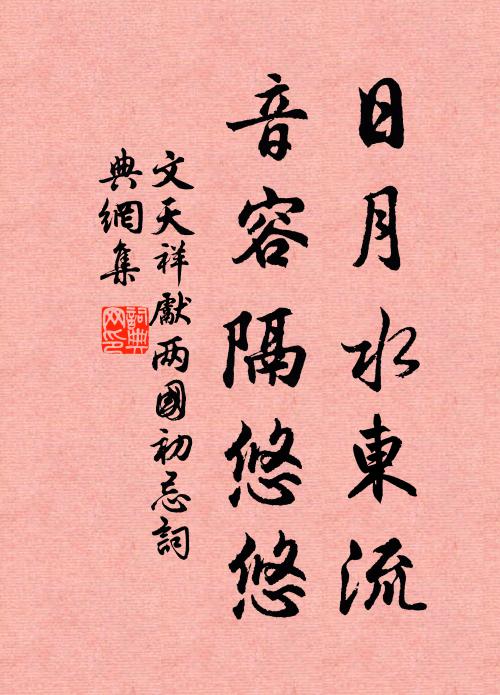 日月水東流
音容隔悠悠
文天祥獻两國初忌詞
典網集
詞典
网印